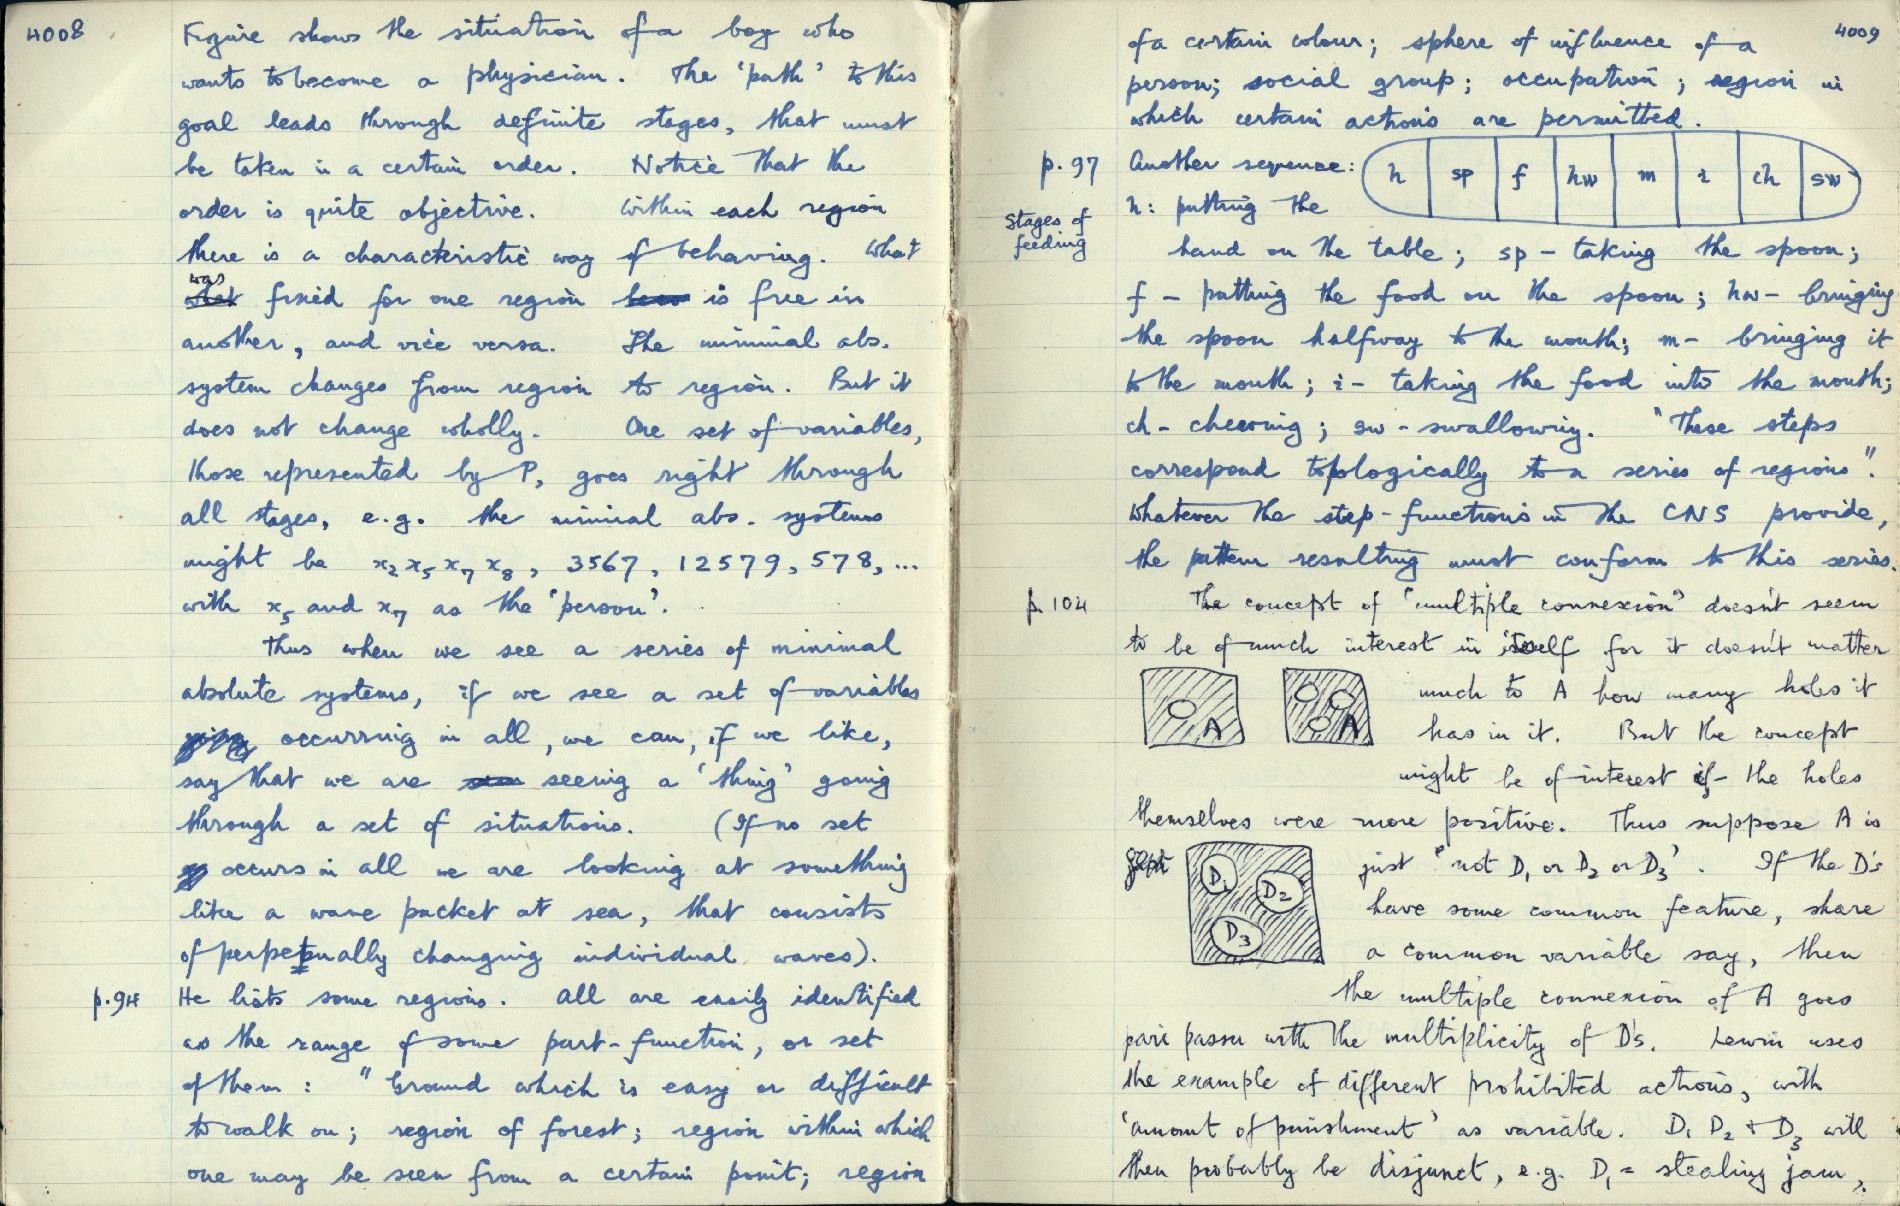 4008
Figure shows the situation of a boy who
wants to become a physician. The 'path' to this
goal leads through definite stages, that must
be taken in a certain order. Notice that the
order is quite objective. Within each region
there is a characteristic way of behaving. What
was
fixed for one region is free in
another, and vice versa. The minimal abs.
system changes from region to region. But it
does not change wholly. One set of variables,
those represented by P, goes right through
all stages, e.g. the minimal abs. systems
might be x₂ x₅ x₇ x₈, 3567, 12579, 578, ...
with x₅ and x₇ as the 'person'.
Thus when we see a series of minimal
absolute systems, if we see a set of variables
occurring in all, we can, if we like,
say that we are seeing a 'thing' going
through a set of situations. (If no set
occurs in all we are looking at something
like a wave packet at sea, that consists
of perpetually changing individual waves).
p.94 He lists some regions. All are easily identified
as the range of some part-function, or set
of them: "Ground which is easy or difficult
to walk on; region of forest; region within which
one may be seen from a certain point; region
4009
of a certain colour; sphere of influence of a
person; social group; occupation; region in
which certain actions are permitted.
p. 97 Another sequence: h sp f hw m i ch sw
Stages of
feeding
h: putting the
hand on the table; sp - taking the spoon;
f - putting the food on the spoon; hw - bringing
the spoon halfway to the mouth; m - bringing it
to the mouth; i - taking the food into the mouth;
ch - chewing; sw - swallowing. "These steps
correspond topologically to a series of regions".
Whatever the step-functions in the CNS provide,
the pattern resulting must conform to this series.
p. 104 The concept of "multiple connexion" doesn't seem
to be of much interest in itself for it doesn't matter
A A much to A how many holes it
has in it. But the concept
might be of interest if the holes
themselves were more positive. Thus suppose A is
D₁ D₂ D₃ just 'not D₁ or D₂ or D₃'. If the D's
have some common feature, share
a common variable say, then
the multiple connexion of A goes
pari passu with the multiplicity of D's. Lewin uses
the example of different prohibited actions, with
'amount of punishment' as variable. D₁ D₂ + D₃ will
then probably be disjunct, e.g. D₁ = stealing jam,